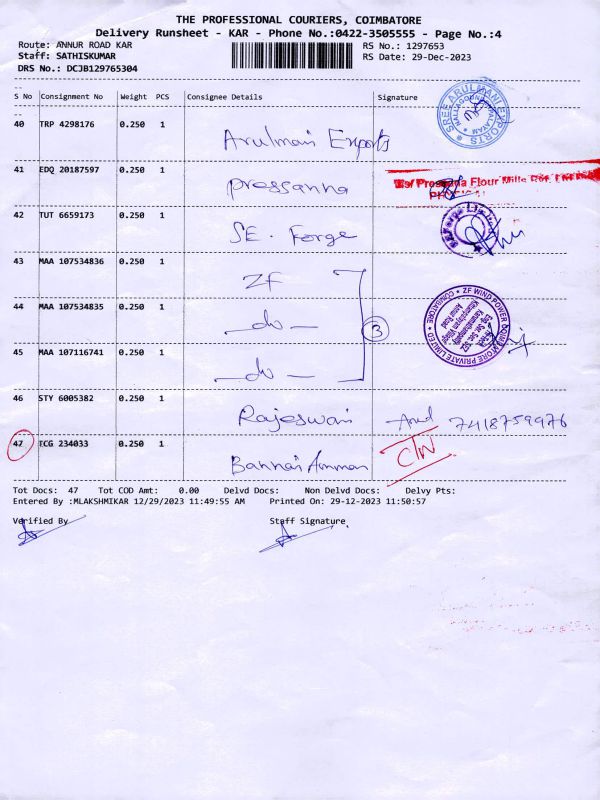 THE PROFESSIONAL COURIERS, COIMBATORE
Delivery Runsheet - KAR - Phone No.:0422-3505555 - Page No.:4
Route: ANNUR ROAD KAR RS No.: 1297653
Staff: SATHISKUMAR RS Date: 29-Dec-2023
DRS No.: DCJB129765304
S No Consignment No Weight PCS Consignee Details Signature
40 TRP 4298176 0.250 1 Arulmani Exports
SREE ARULMANI EXPORTS
41 EDQ 20187597 0.250 1 pressanna
Flour Mills
42 TUT 6659173 0.250 1 SE. Forge
43 MAA 107534836 0.250 1 ZF
44 MAA 107534835 0.250 1 —do— 3
ZF WIND POWER COIMBATORE PRIVATE LIMITED
COIMBATORE
45 MAA 107116741 0.250 1 —do—
46 STY 6005382 0.250 1 Rajeswari 7418759976
47 TCG 234033 0.250 1 Bannai Amman C/N
Tot Docs: 47 Tot COD Amt: 0.00 Delvd Docs: Non Delvd Docs: Delvy Pts:
Entered By :MLAKSHMIKAR 12/29/2023 11:49:55 AM Printed On: 29-12-2023 11:50:57
Verified By Staff Signature